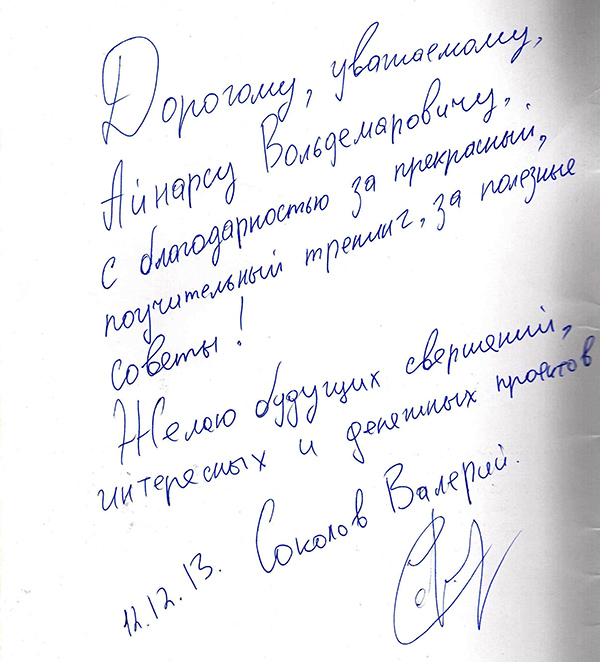 Дорогому, уважаемому,
Айнарсу Вольдемаровичу,
с благодарностью за прекрасный,
поучительный тренинг, за полезные
советы!
Желаю будущих свершений,
интересных и денежных проектов
12.12.13. Соколов Валерий.